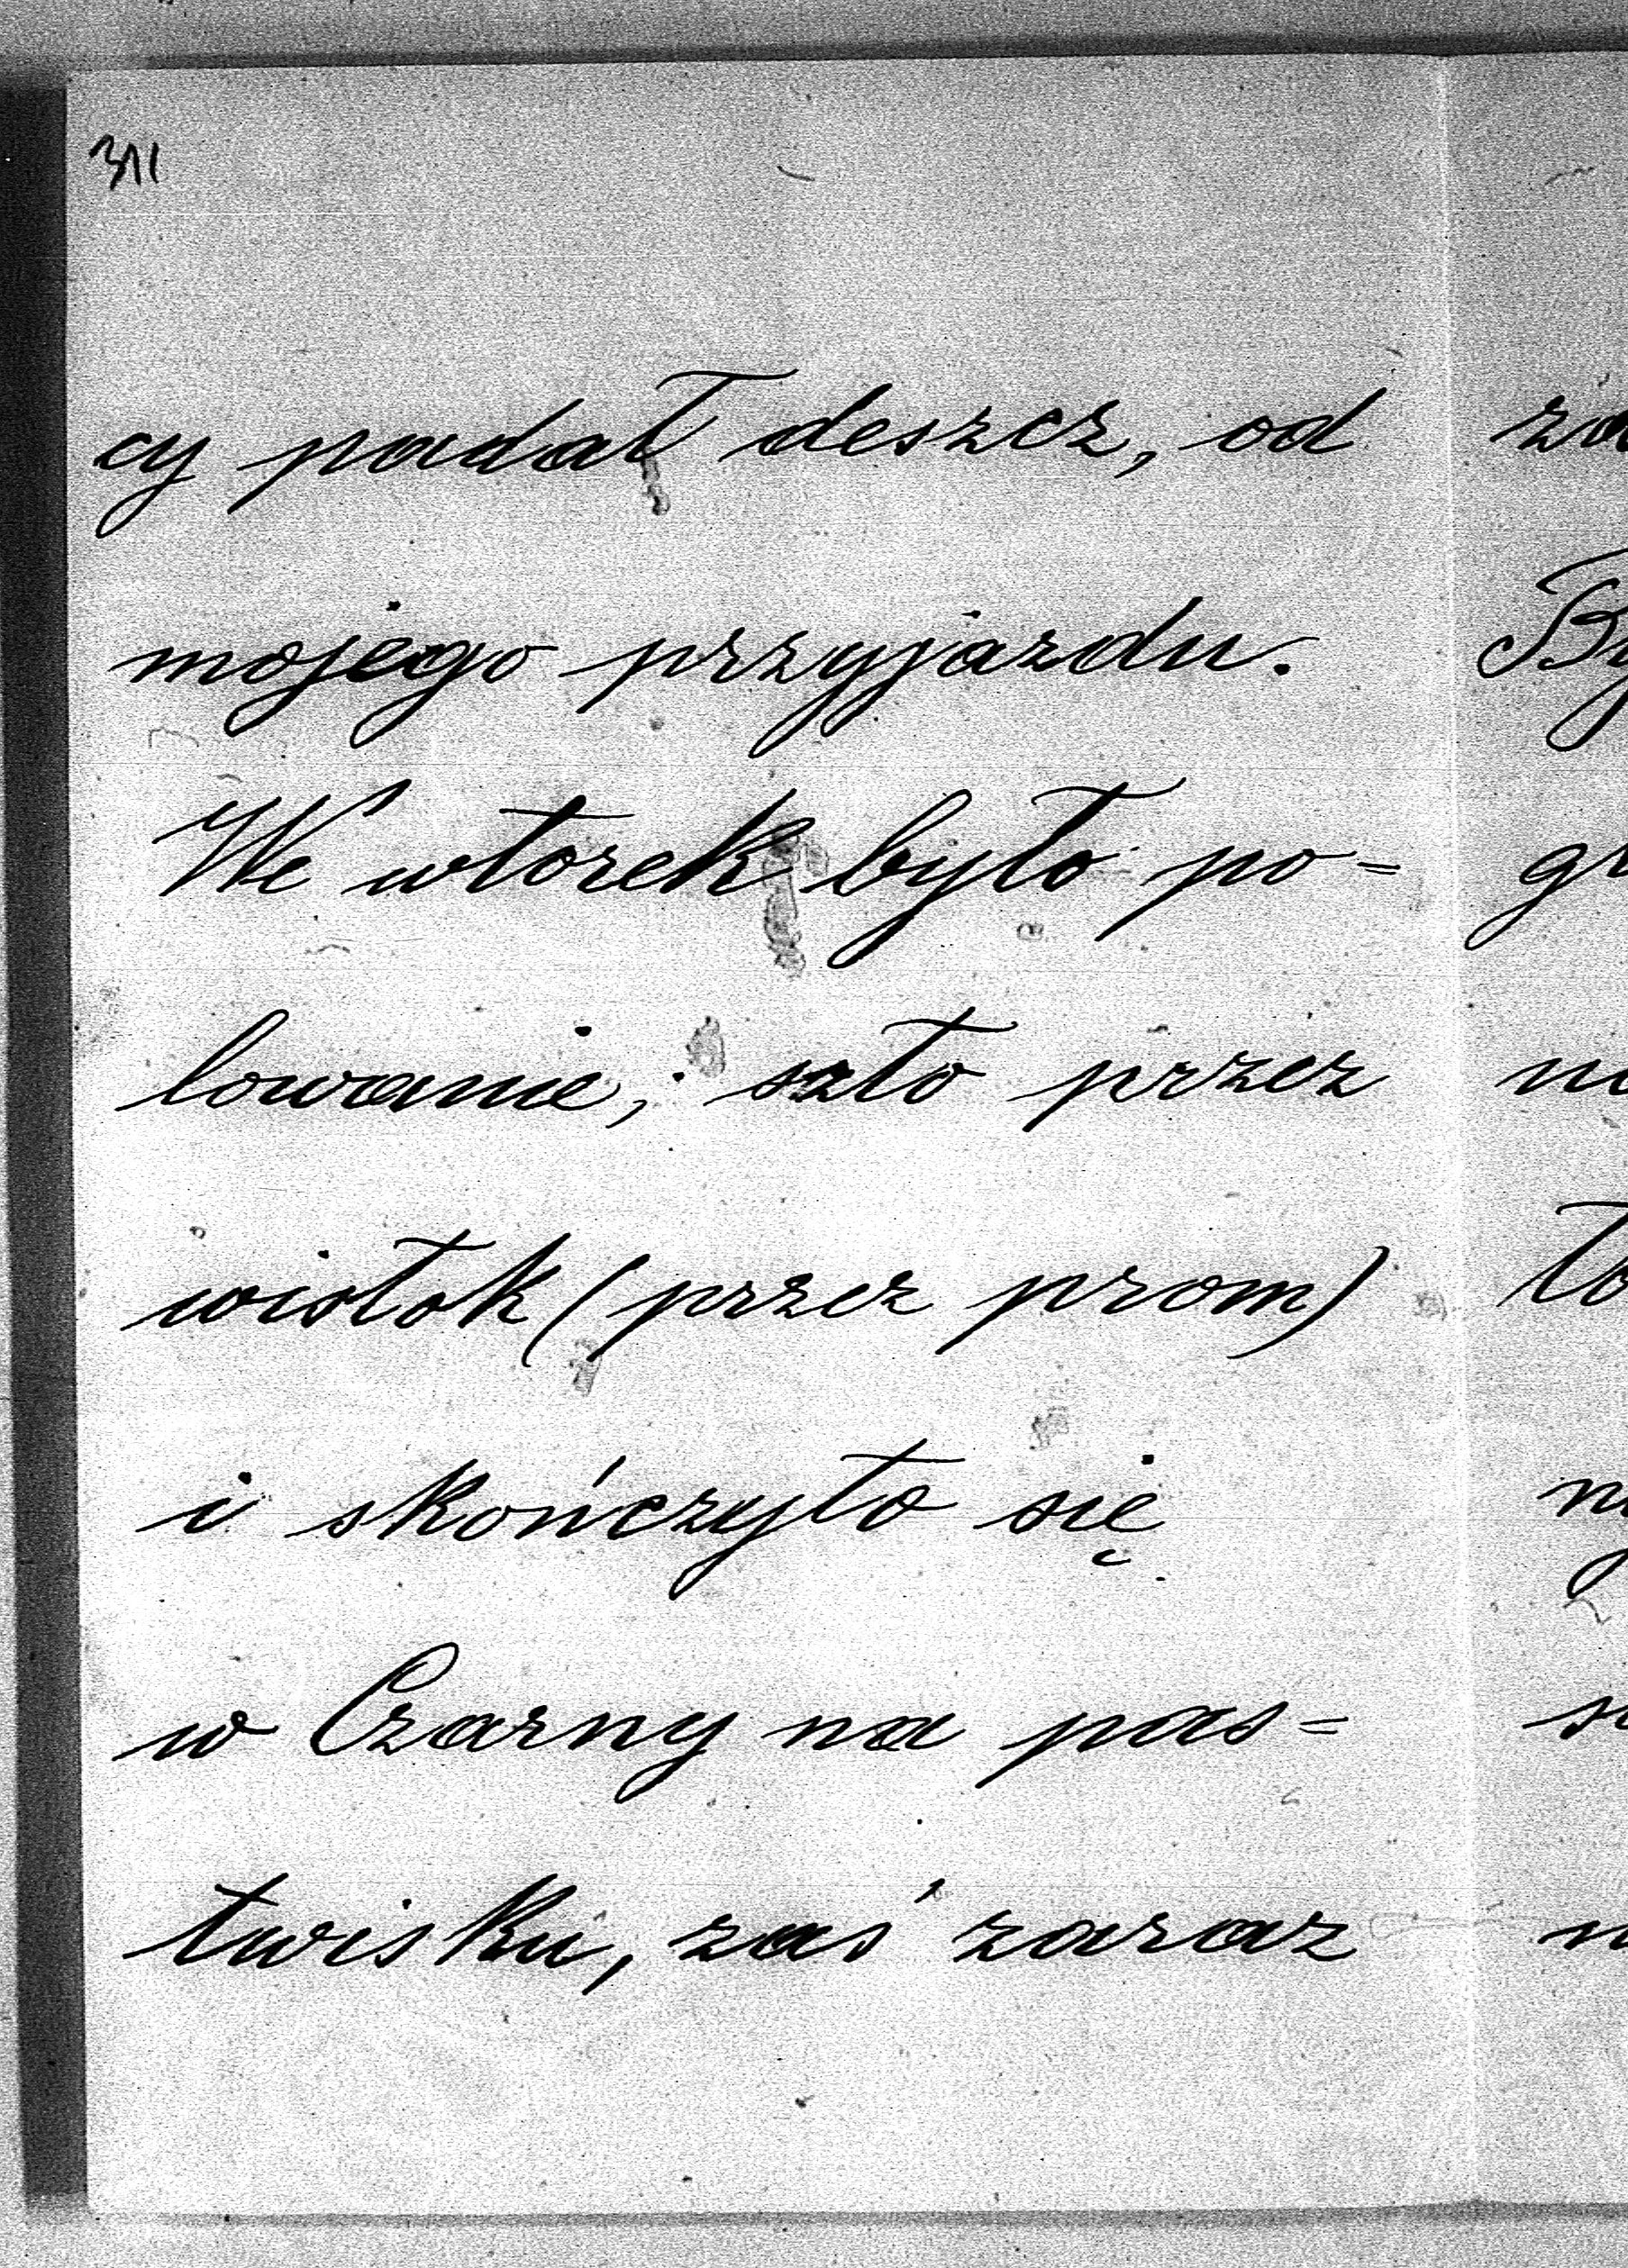 311
cy padał deszcz, od
mojego przyjazdu.
We wtorek było po=
lowanie, szło przez
wisłok (przez prom)
i skończyło się
w Czarny na pas=
twisku, zaś zaraz
By